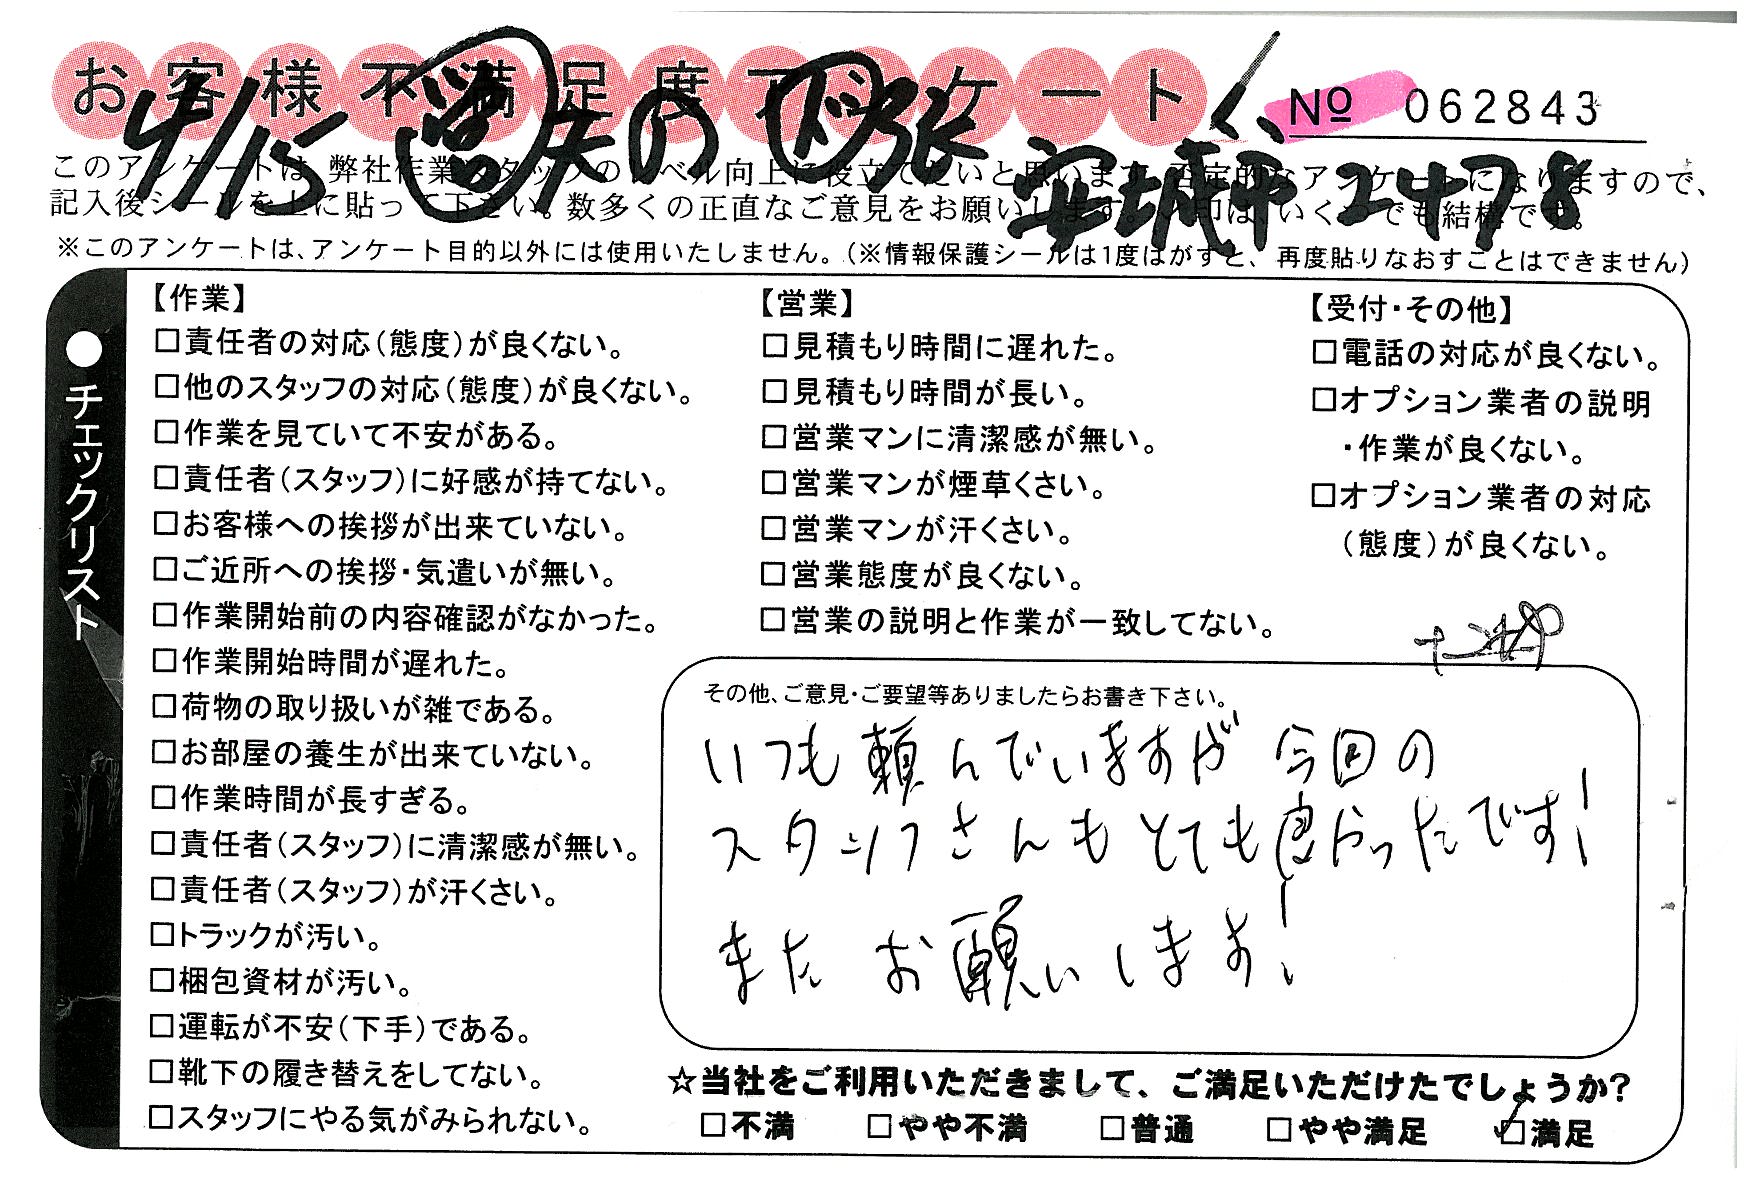 お客様不満足度アンケート
No 062843
4/15
安城市 2478
このアンケートは、弊社作業スタッフのレベル向上に役立てたいと思います。否定的なアンケートになりますので、
記入後シールを上に貼って下さい。数多くの正直なご意見をお願いします。 いくつでも結構です。
※このアンケートは、アンケート目的以外には使用いたしません。(※情報保護シールは1度はがすと、再度貼りなおすことはできません)
●チェックリスト
【作業】
□責任者の対応(態度)が良くない。
□他のスタッフの対応(態度)が良くない。
□作業を見ていて不安がある。
□責任者(スタッフ)に好感が持てない。
□お客様への挨拶が出来ていない。
□ご近所への挨拶・気遣いが無い。
□作業開始前の内容確認がなかった。
□作業開始時間が遅れた。
□荷物の取り扱いが雑である。
□お部屋の養生が出来ていない。
□作業時間が長すぎる。
□責任者(スタッフ)に清潔感が無い。
□責任者(スタッフ)が汗くさい。
□トラックが汚い。
□梱包資材が汚い。
□運転が不安(下手)である。
□靴下の履き替えをしてない。
□スタッフにやる気がみられない。
【営業】
□見積もり時間に遅れた。
□見積もり時間が長い。
□営業マンに清潔感が無い。
□営業マンが煙草くさい。
□営業マンが汗くさい。
□営業態度が良くない。
□営業の説明と作業が一致してない。
【受付・その他】
□電話の対応が良くない。
□オプション業者の説明
・作業が良くない。
□オプション業者の対応
(態度)が良くない。
その他、ご意見・ご要望等ありましたらお書き下さい。
いつも頼んでいますが 今回の
スタッフさんもとても良かったです!
またお願いします!
☆当社をご利用いただきまして、ご満足いただけたでしょうか?
□不満 □やや不満 □普通 □やや満足 ☑満足